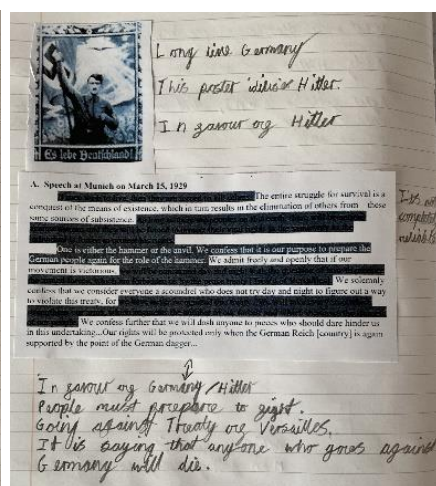 Long live Germany
This poster idilises Hitler.
In favour of Hitler
Es lebe Deutschland!
A. Speech at Munich on March 15, 1929
The entire struggle for survival is a
conquest of the means of existence, which in turn results in the elimination of others from these
same sources of subsistence.
One is either the hammer or the anvil. We confess that it is our purpose to prepare the
German people again for the role of the hammer. We admit freely and openly that if our
movement is victorious,
We solemnly
confess that we consider everyone a scoundrel who does not try day and night to figure out a way
to violate this treaty, for
We confess further that we will dash anyone to pieces who should dare hinder us
in this undertaking...Our rights will be protected only when the German Reich [country] is again
supported by the point of the German dagger...
completely
reliable
In favour of Germany/Hitler
People must prepare to fight.
Going against Treaty of Versailles.
It is saying that anyone who goes against
Germany will die.